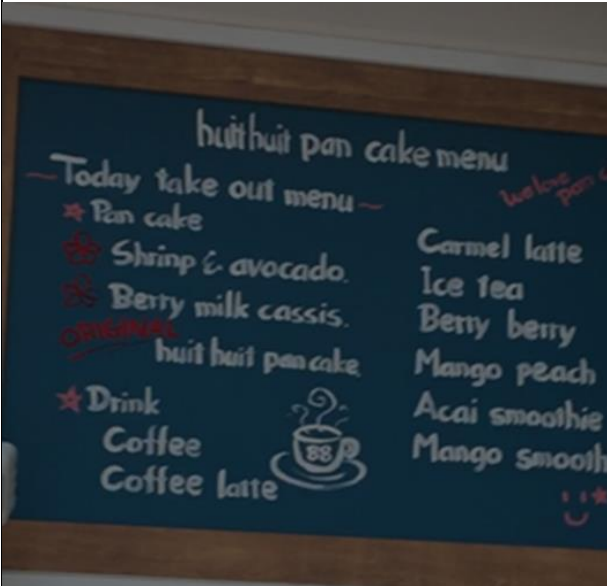 huit huit pan cake menu
Today take out menu
Pan cake
Shrinp & avocado.
Berry milk cassis.
ORIGINAL
huit huit pan cake
Drink
Coffee
Coffee latte
88
We love
pan c
Carmel latte
Ice tea
Berry berry
Mango peach
Acai smoothie
Mango smooth